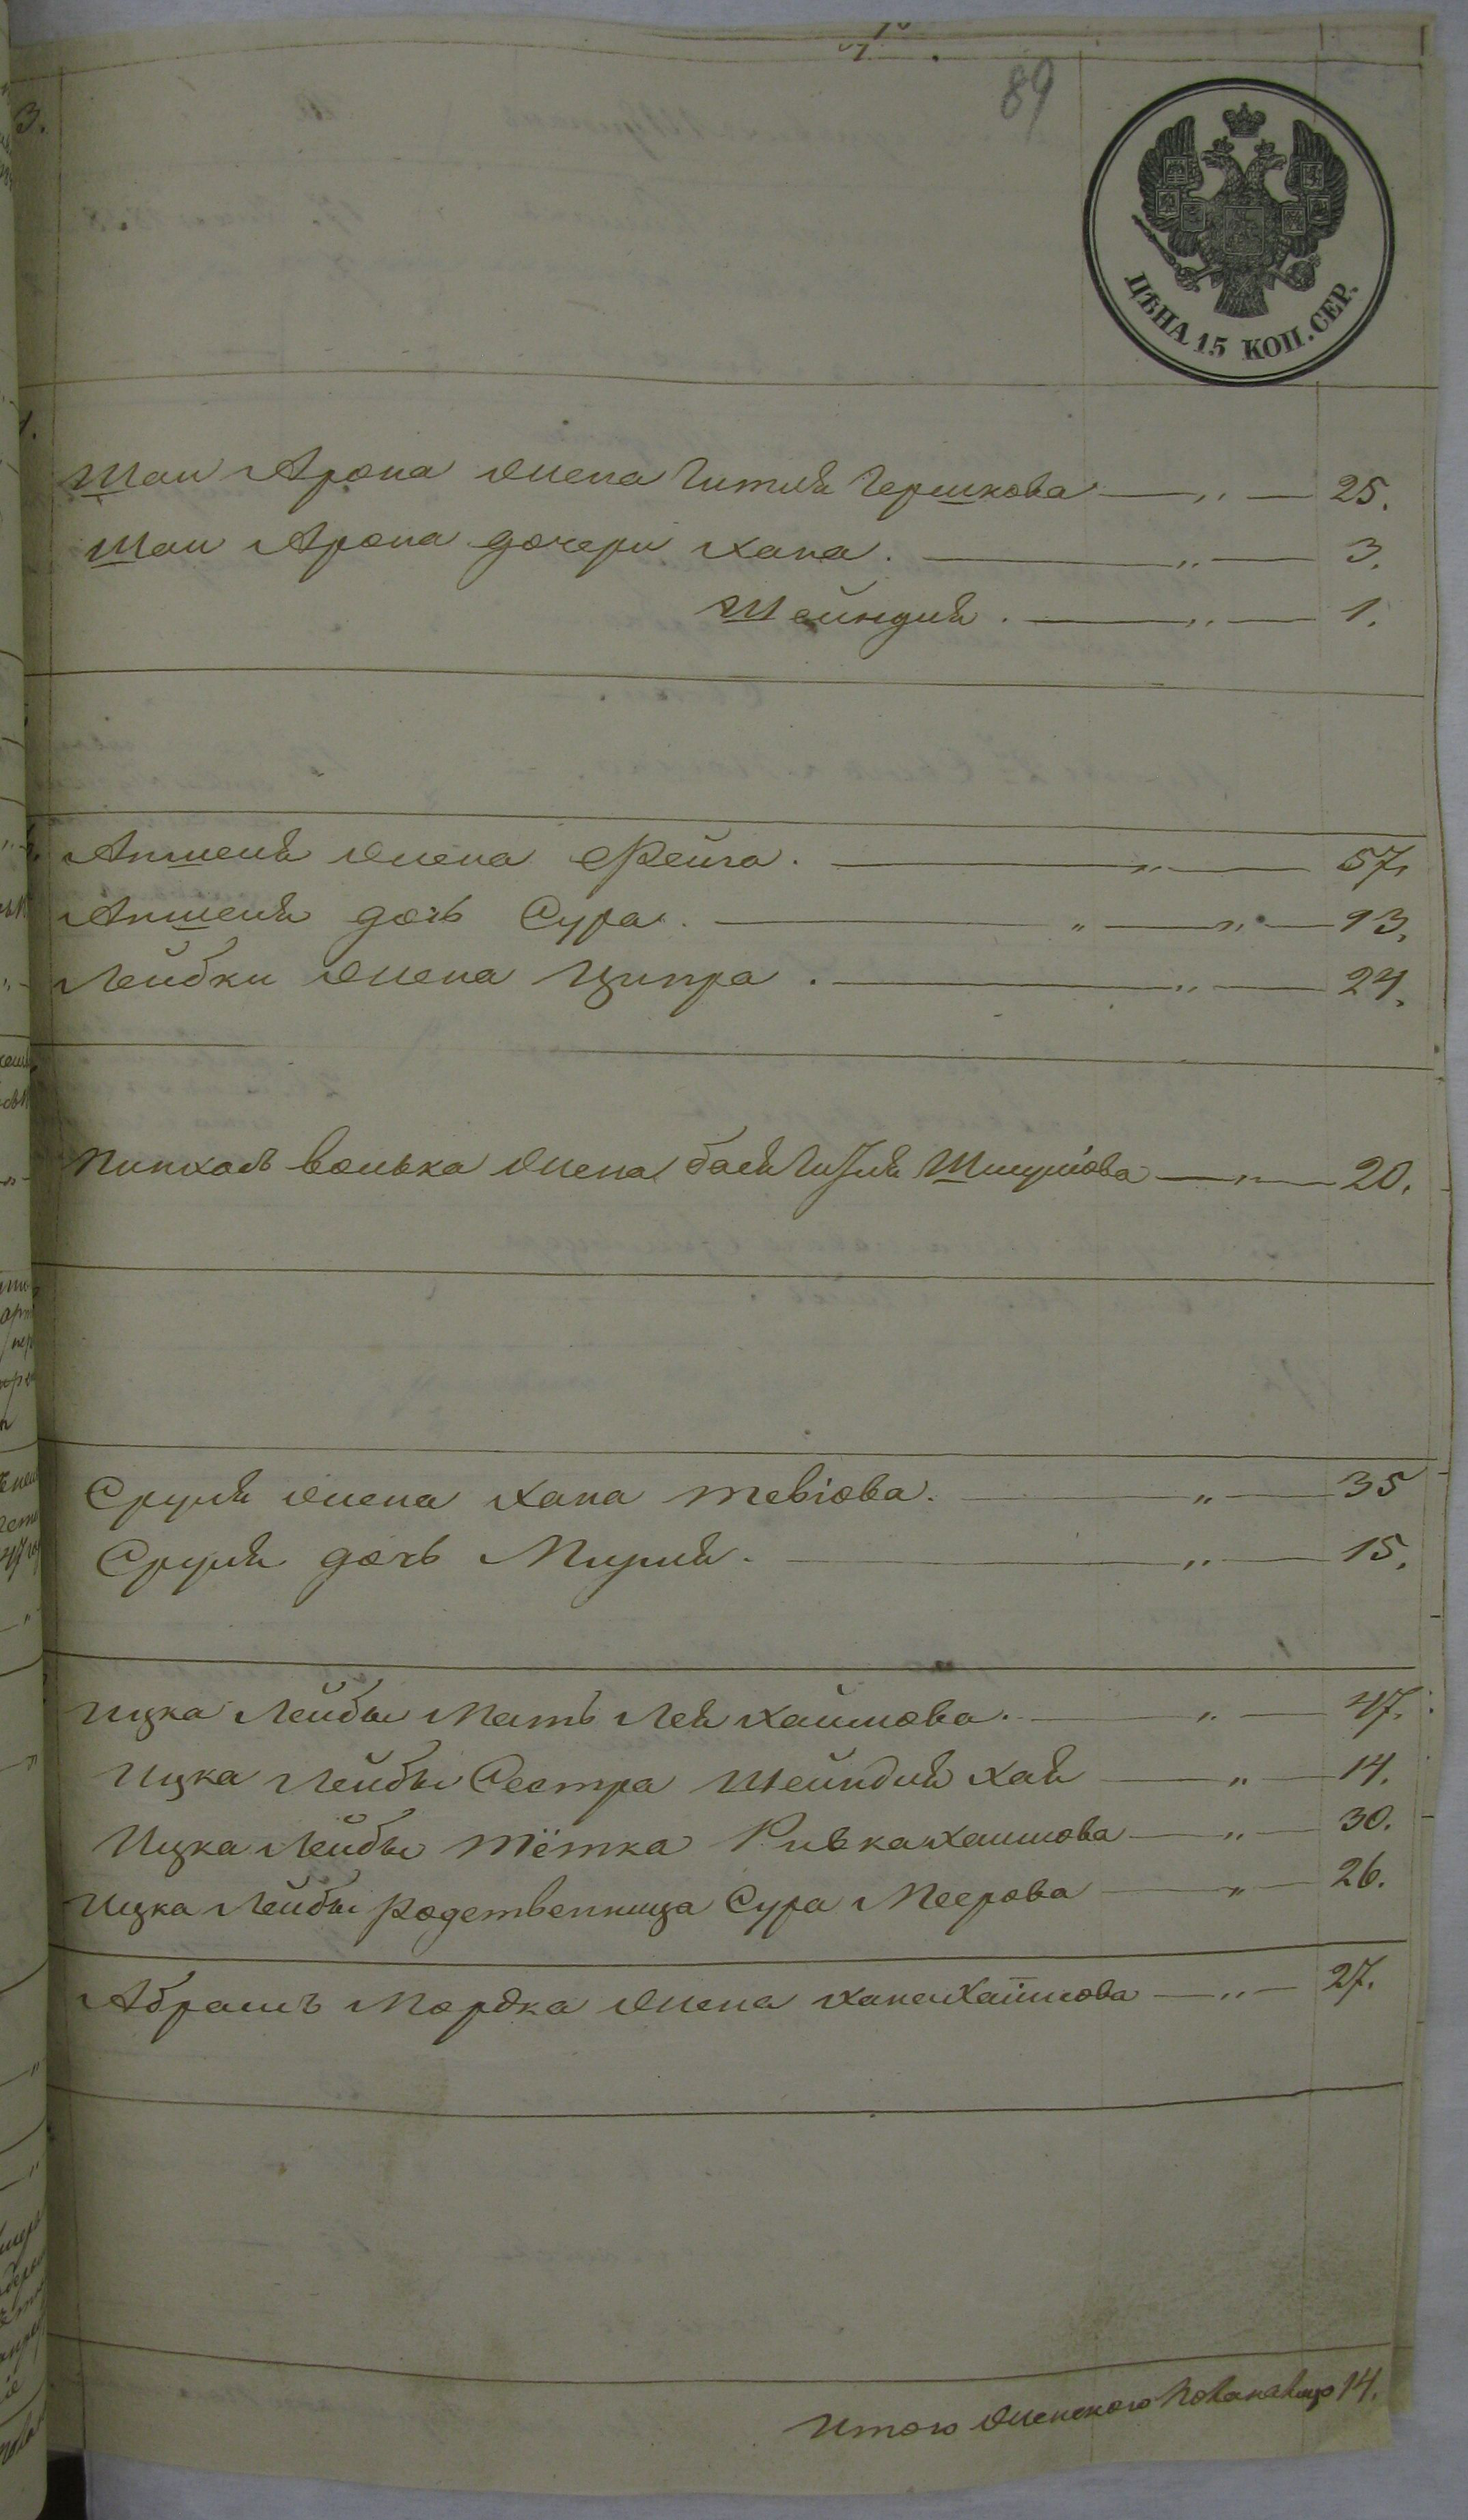 89
ЦѢНА 15 КОП. СЕР.
Шаи Арона жена Гитля Гершкова — „ — 25.
Шаи Арона дочери Хана. — „ — 3.
Шейндля. — „ — 1.
Апшеля жена Фейга. — „ — 57.
Апшеля дочь Сура. — „ — „ — 13.
Лейбки жена Ципра. — „ — 24.
Волька жена Шмулiова — „ — 20.
Сруля жена Хана Тевiова. — „ — 35
Сруля дочь Миріля. — „ — 15.
Ицка Лейбы Мать Лея Хаимова. — „ — 47.
Ицка Лейбы Сестра Шейндля Хая — „ — 14.
Ицка Лейбы тётка Ривка Хаимова — „ — 30.
Ицка Лейбы родственница Сура Меерова — „ — 26.
Абрамъ Мордка жена Хана Хаимова — „ — 27.
Итого женского на лицо 14.